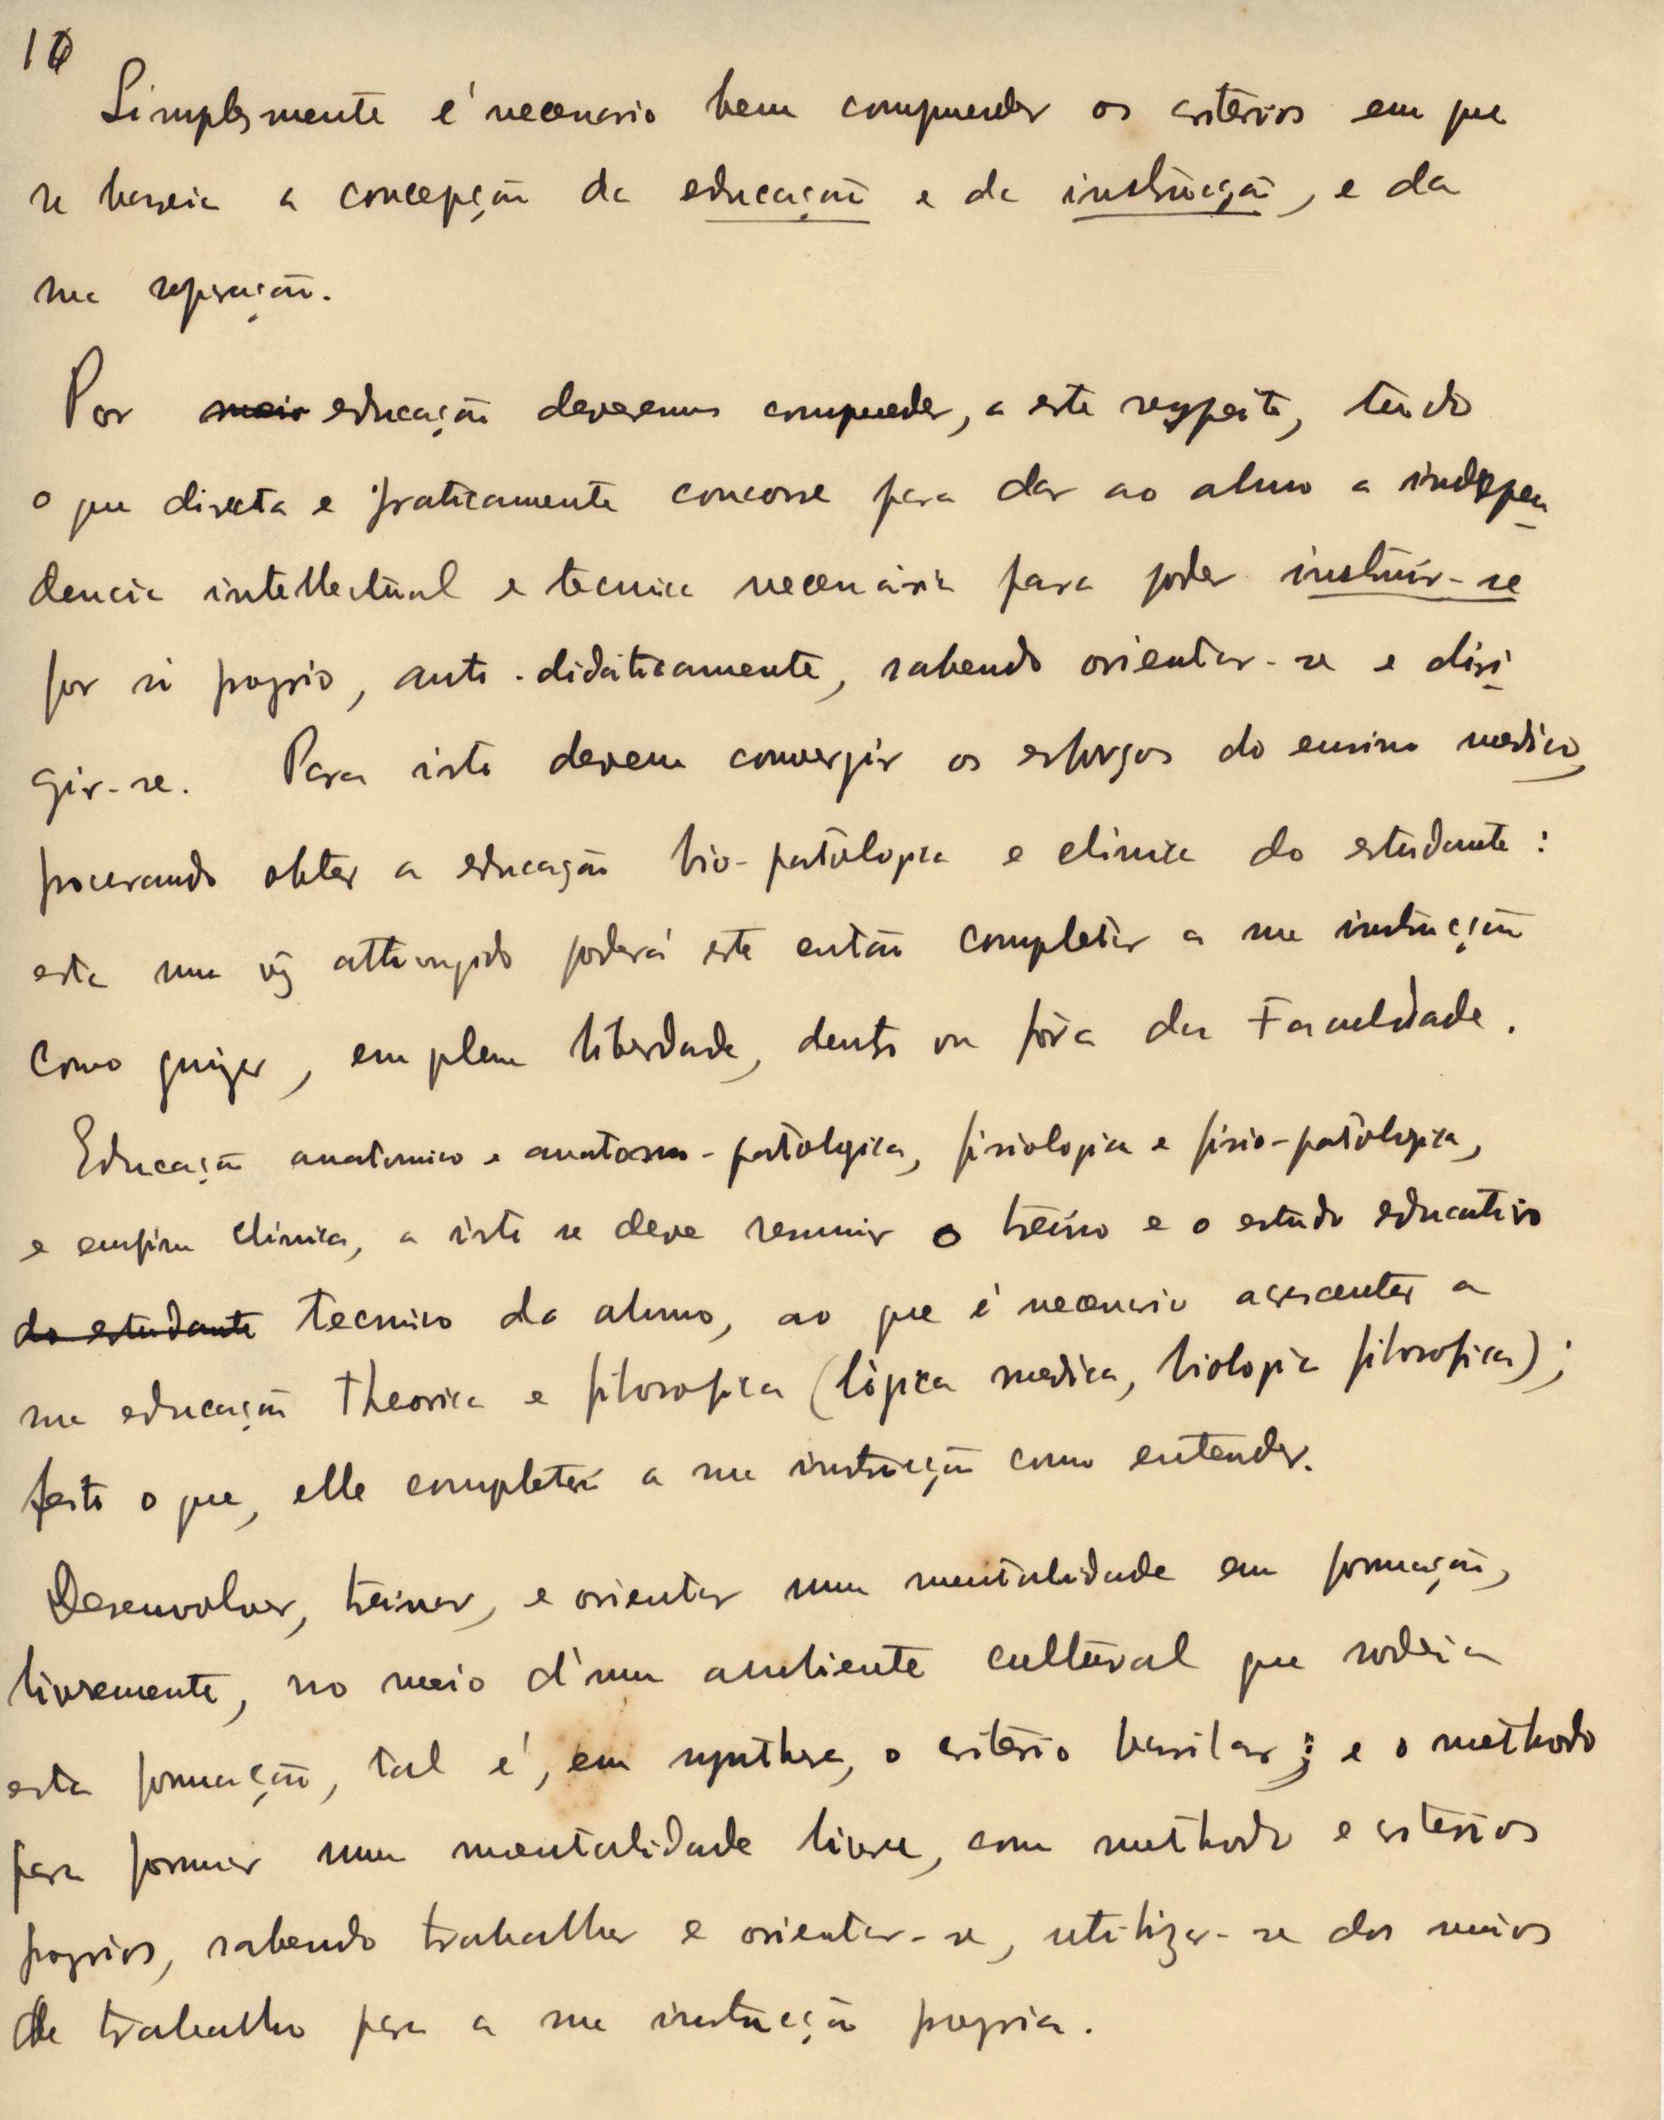 16
Simplesmente é necessario bem comprender os criterios em que
se baseia a concepção da educação e da instrucção, e da
sua separação.
Por mais educação devemos comprender, a este respeito, tudo
o que directa e praticamente concorre para dar ao aluno a indepen
dencia intellectual e tecnica necessária para poder instruir-se
por si proprio, auto-didáticamente, sabendo orientar-se e diri
gir-se. Para isto devem convergir os esforços do ensino medico,
procurando obter a educação bio-patologica e clinica do estudante:
esta uma vez attingida poderá este então completar a sua instrucção
como quizer, em plena liberdade, dentro ou fóra da Faculdade.
Educação anatomica e anatomo-patologica, fisiologica e fisio-patologica,
e enfim clinica, a isto se deve resumir o treino e o estudo educativo
do estudante tecnico do aluno, ao que é necessario acrescentar a
sua educação theorica e filosofica (lógica medica, biologia filosofica);
feito o que, elle completará a sua instrucção como entender.
Desenvolver, treinar, e orientar uma mentalidade em formação,
livremente, no meio d'um ambiente cultural que rodeia
esta formação, tal é, em synthese, o criterio basilar; e o methodo
para formar uma mentalidade livre, com methodo e criterios
proprios, sabendo trabalhar e orientar-se, utilizar-se dos meios
de trabalho para a sua instrucção propria.